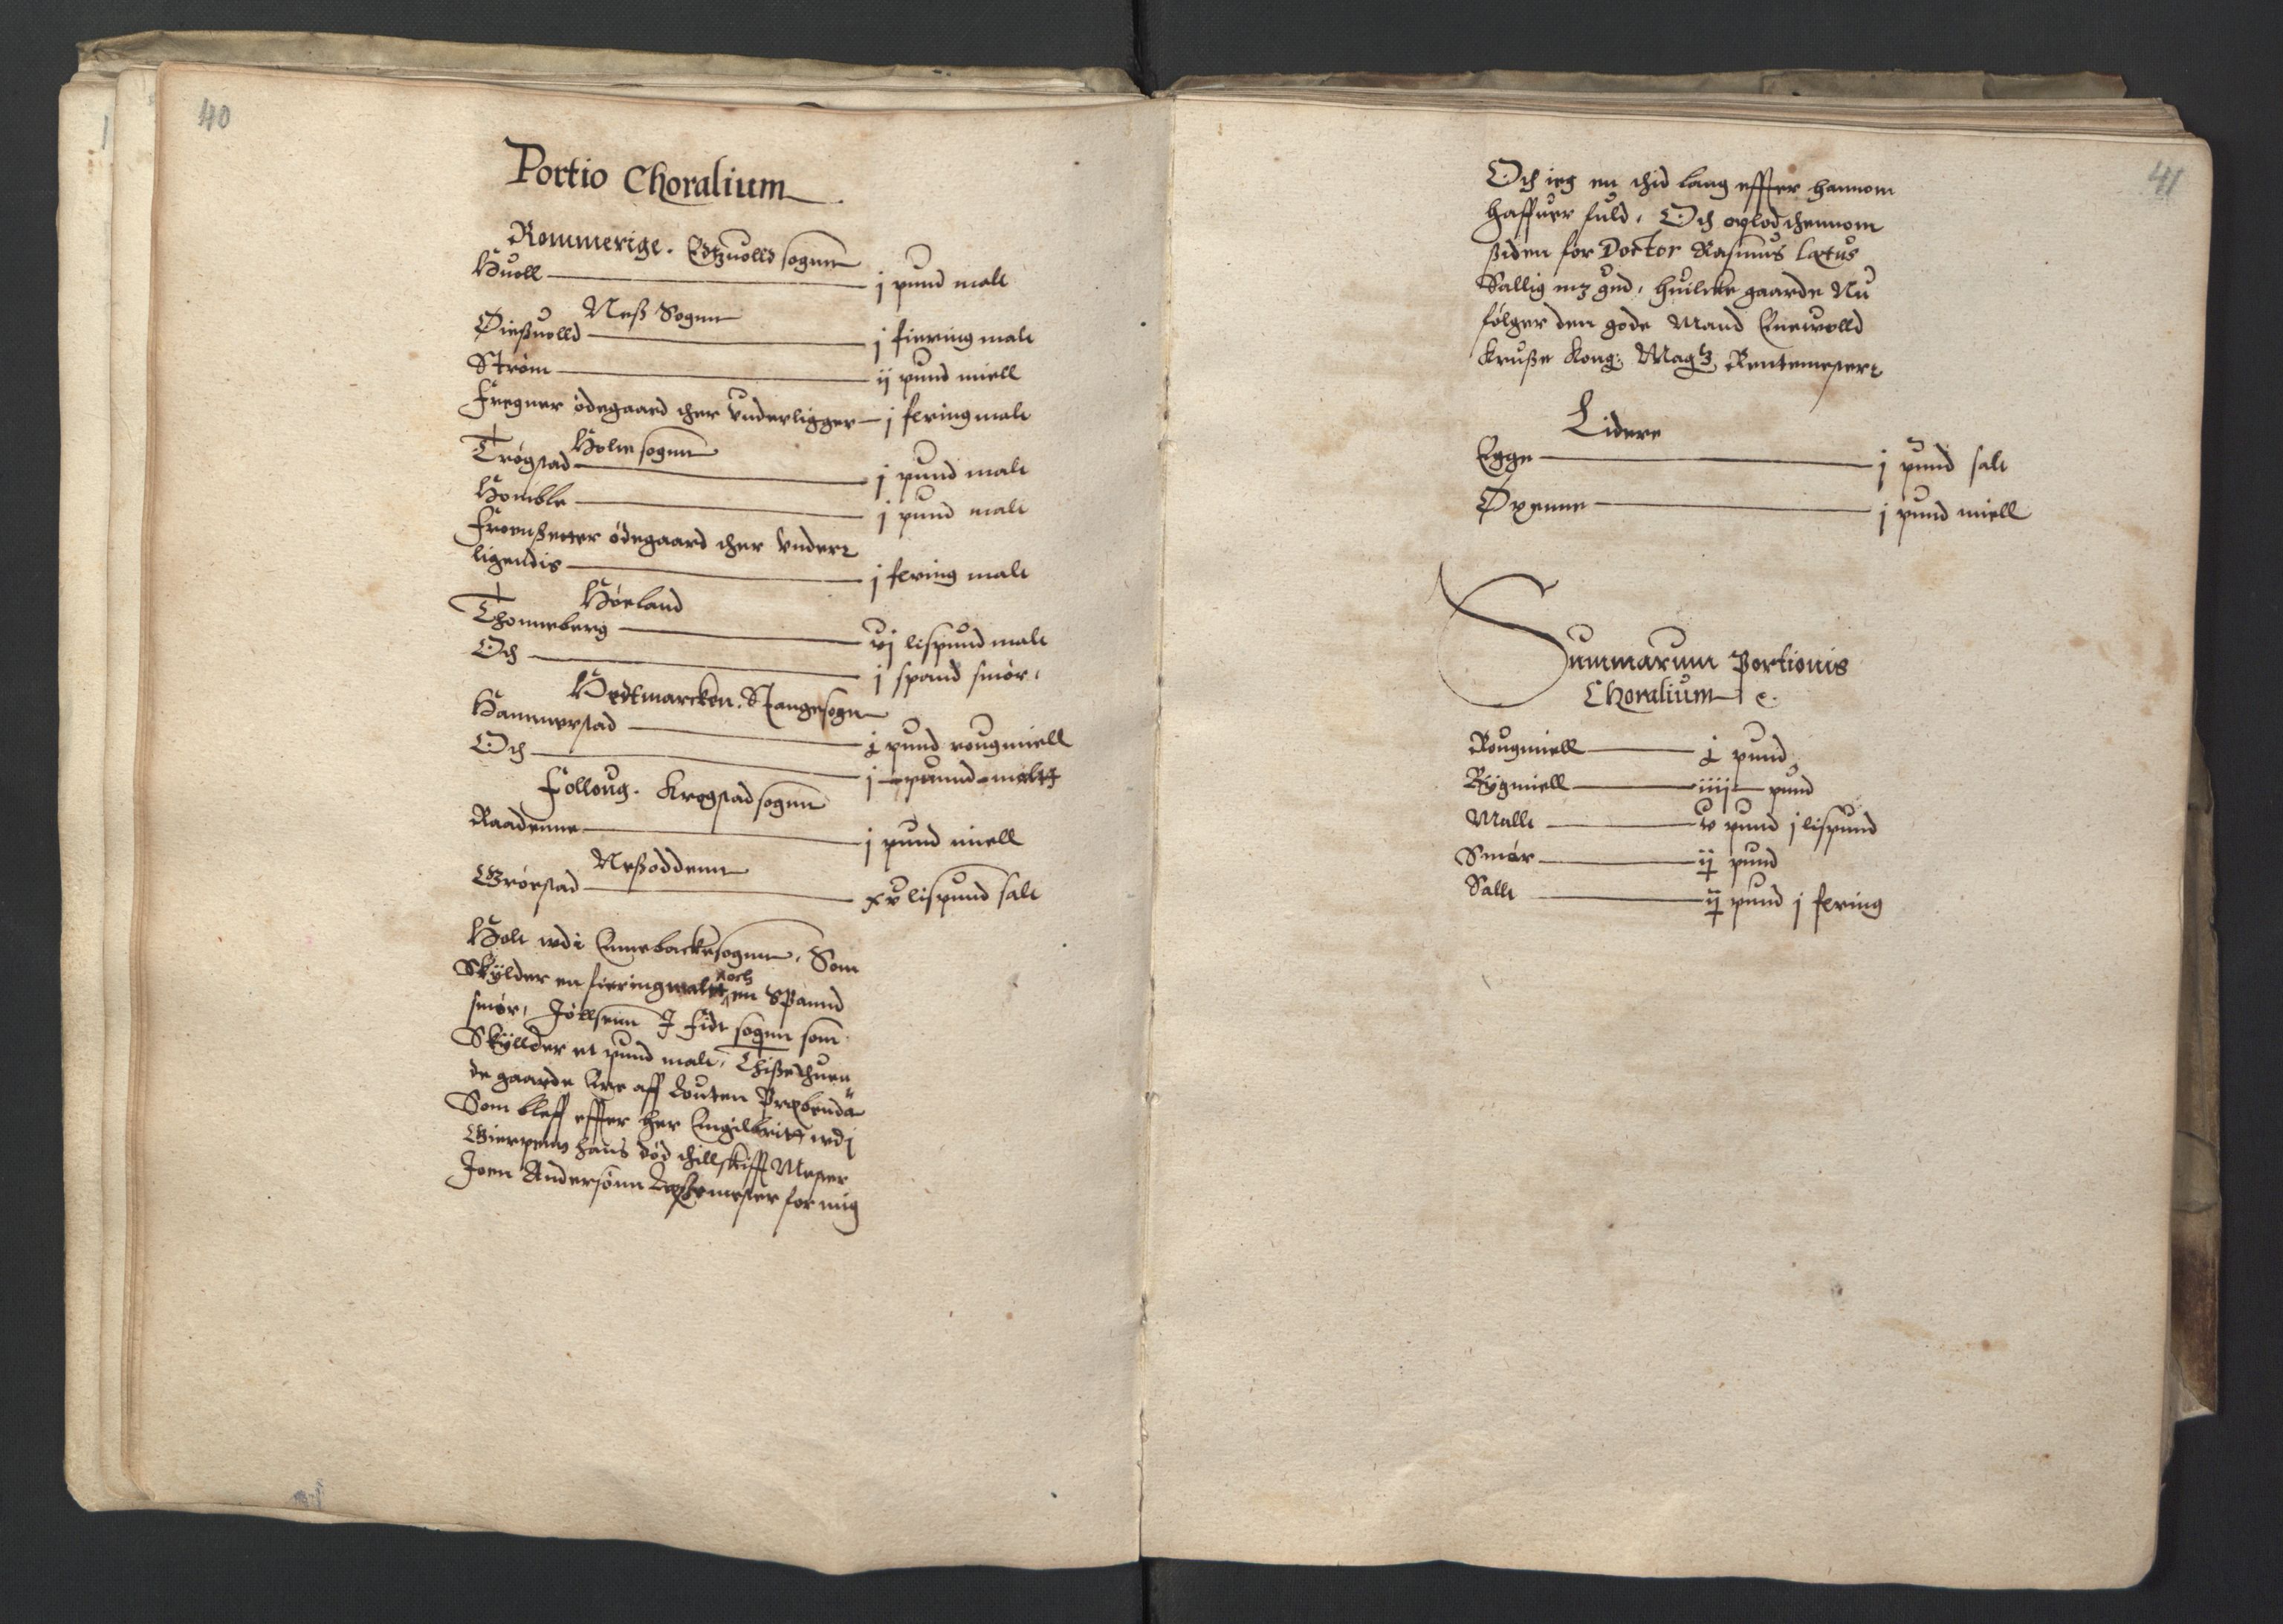 40
Portio Choralium
Rommerige. Edtzuolld sognn
Huoll — j pund malt
Neß Sognn
Øießuolld — j fiering malt
Strøm — ij pund miell
Fregner ødegaard ther vnderligger — j fering malt
Holve sognn
Trøgstad — j pund malt
Homble — j pund malt
Froenßetter ødegaard ther vnder
ligendis — j fering malt
Høeland
Thonneberg — vj lispund malt
Och — j spand smør.
Hedtmarcken. Stange sogn
Hammerstad — j pund rougmiell
Och — j pund maltt
Folloug. Krogstad sognn
Raadenne — j pund miell
Neßoddenn
Grøestad — xv lispund salt
Holt wdi Ennebacke sognn, Som
Skylder en fiering maltt och en Spannd
smør, Jøllsenn J Fidt sognn som
Skyllder et pund malt, Thiße thuen
de gaarde Ere aff Louten Præbenda
Som bleff effter her Engilbritt wdj
Gierpenn hans død thillskifft Mester
Joen Andersønn Leßemester for mig
41
Och ieg en thid lang effter hannom
haffuer fuld, Och oplod thennom
siden for Doctor Rasmus Lætus
Sallig mz gud, huilcke gaarde Nu
følger den gode Mand Enewolld
Kruße Kong: Magtz Rentemester
Lidere
Egge — j pund salt
Øxenne — j pund miell
Summarum Portionis
Choralium e.
Rougmiell — j pund
Bygmiell — iiij pund
Mallt — v pund j lispund
Smør — ij pund
Sallt — ij pund j fering